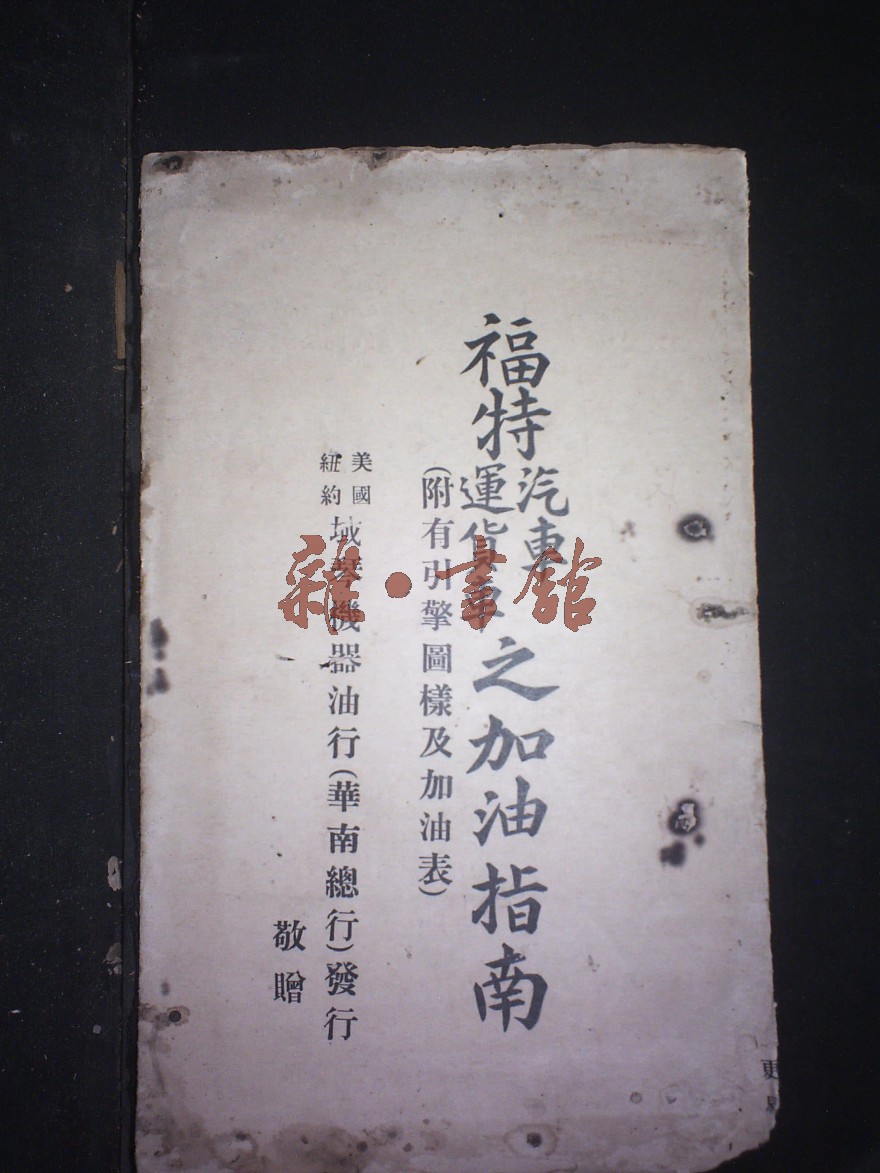 福特汽車運貨車之加油指南
(附有引擎圖樣及加油表)
美國紐約域琴機器油行(華南總行)發行
敬贈
雜·書館
更